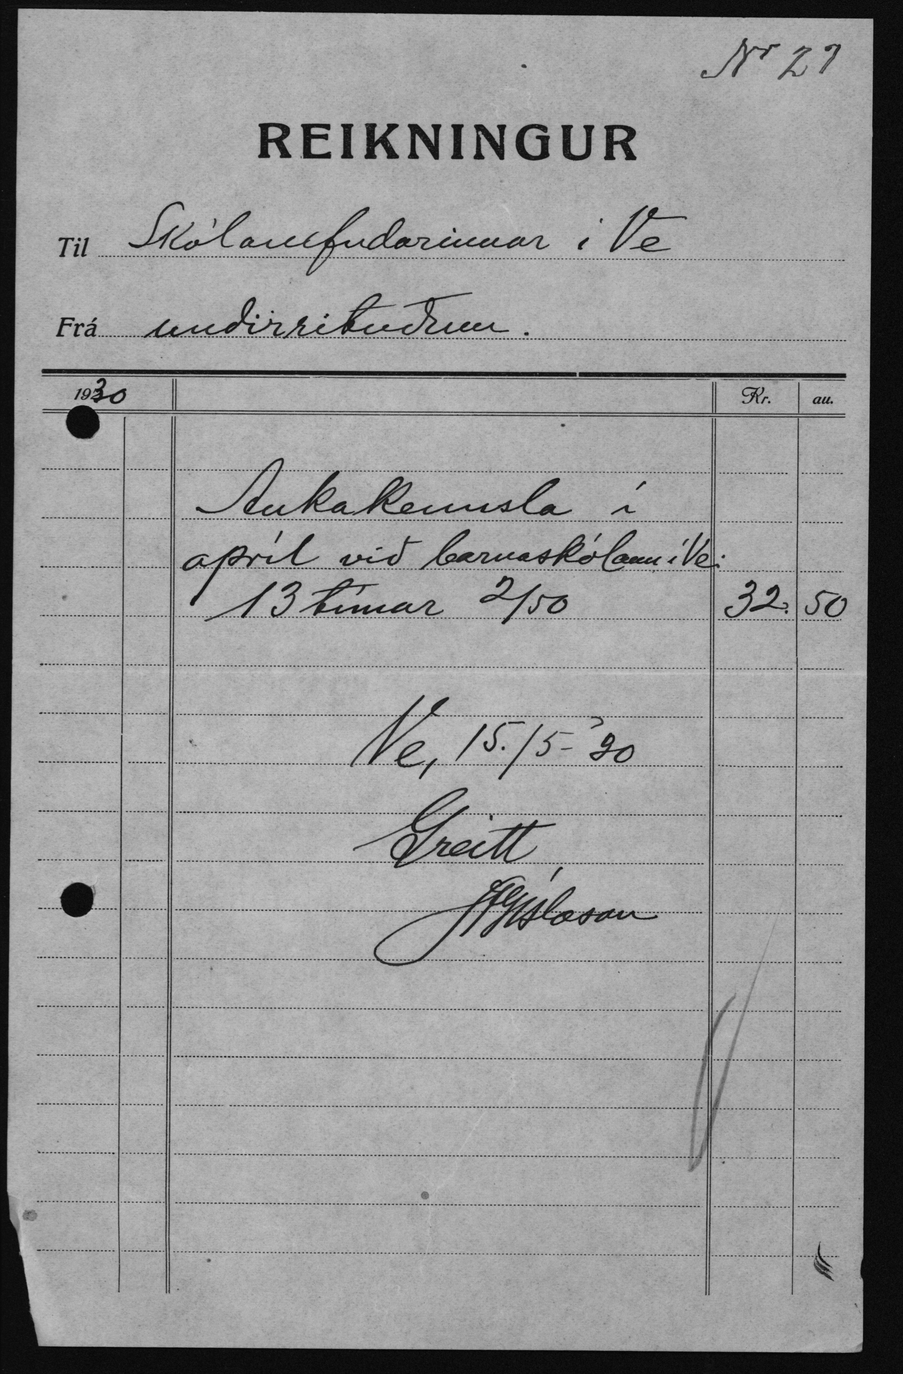 Nr 27
REIKNINGUR
Til Skólanefndarinnar í Ve
Frá undirrituðum.
1930 Kr. au.
Aukakennsla í
apríl við barnaskólann í Ve:
13 tímar 2/50 32. 50
Ve, 15./5-'30
Greitt
Gíslason